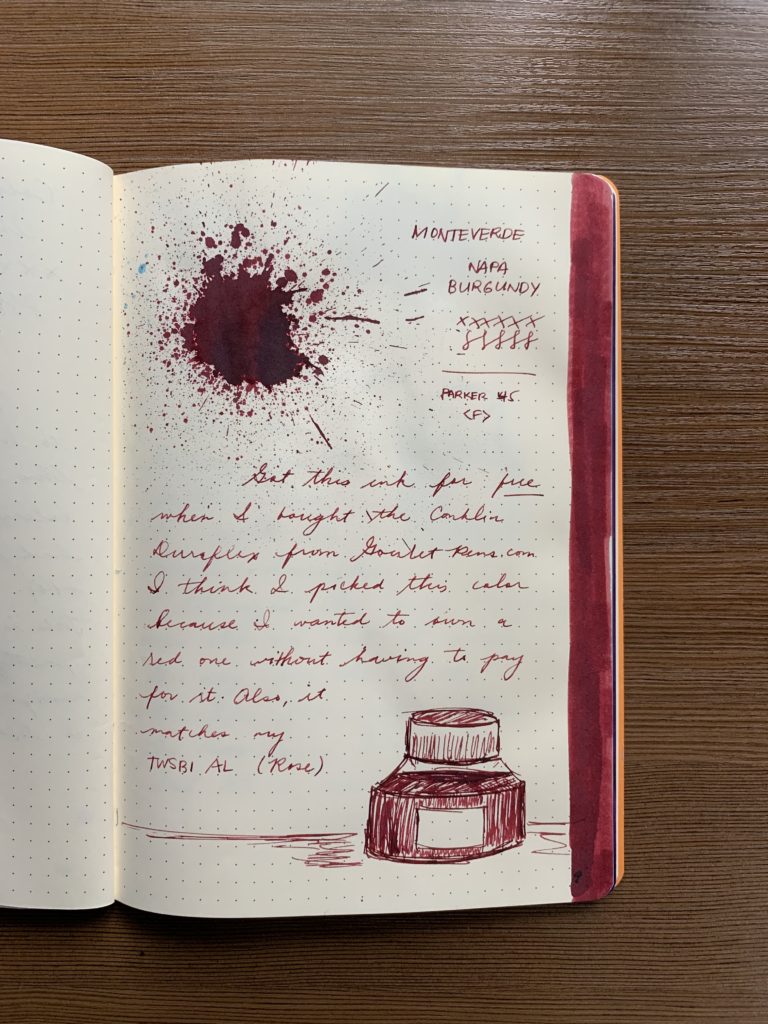 MONTEVERDE
NAPA
BURGUNDY
xxxxxx
PARKER 45
<F>
Got this ink for free
when I bought the Conklin
Duraflex from Goulet Pens.com
I think I picked this color
because I wanted to own a
red one without having to pay
for it. Also, it
matches my
TWSBI AL (Rose)